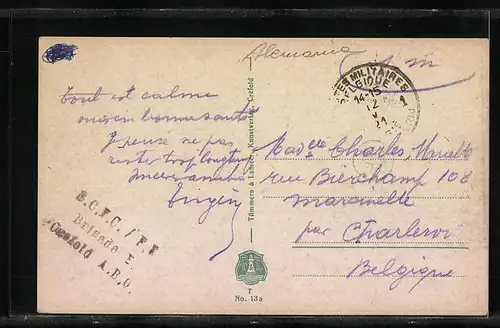 Alemania
S.M.
Tout est calme
moyen bonne santé
Je pense ne pas
rester trop longtemps
Eugène
S.C.F.C. / P.P.
Brigade E.
Crefeld A.R.O.
Tümmers & Kunstverlag, Crefeld
T
No. 13a
MILITAIRES
BELGIQUE
14-15
12
V
21
1
Charles
rue Bierchamp 108
Marcinelle
par Charleroi
Belgique